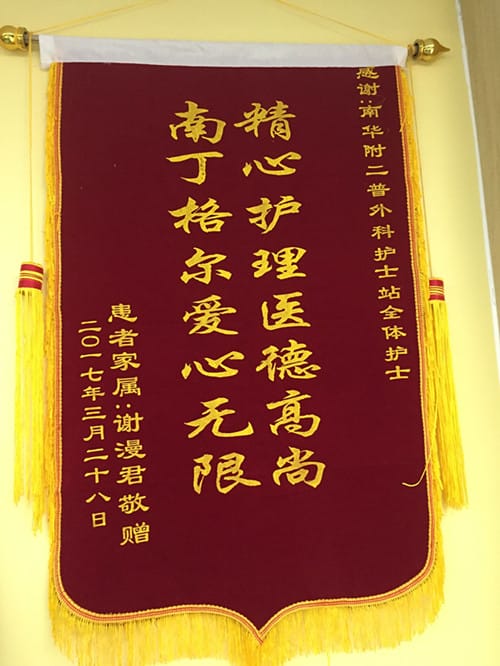 感谢:南华附二普外科护士站全体护士
精心护理医德高尚
南丁格尔爱心无限
患者家属:谢漫君敬赠
二〇一七年三月二十八日